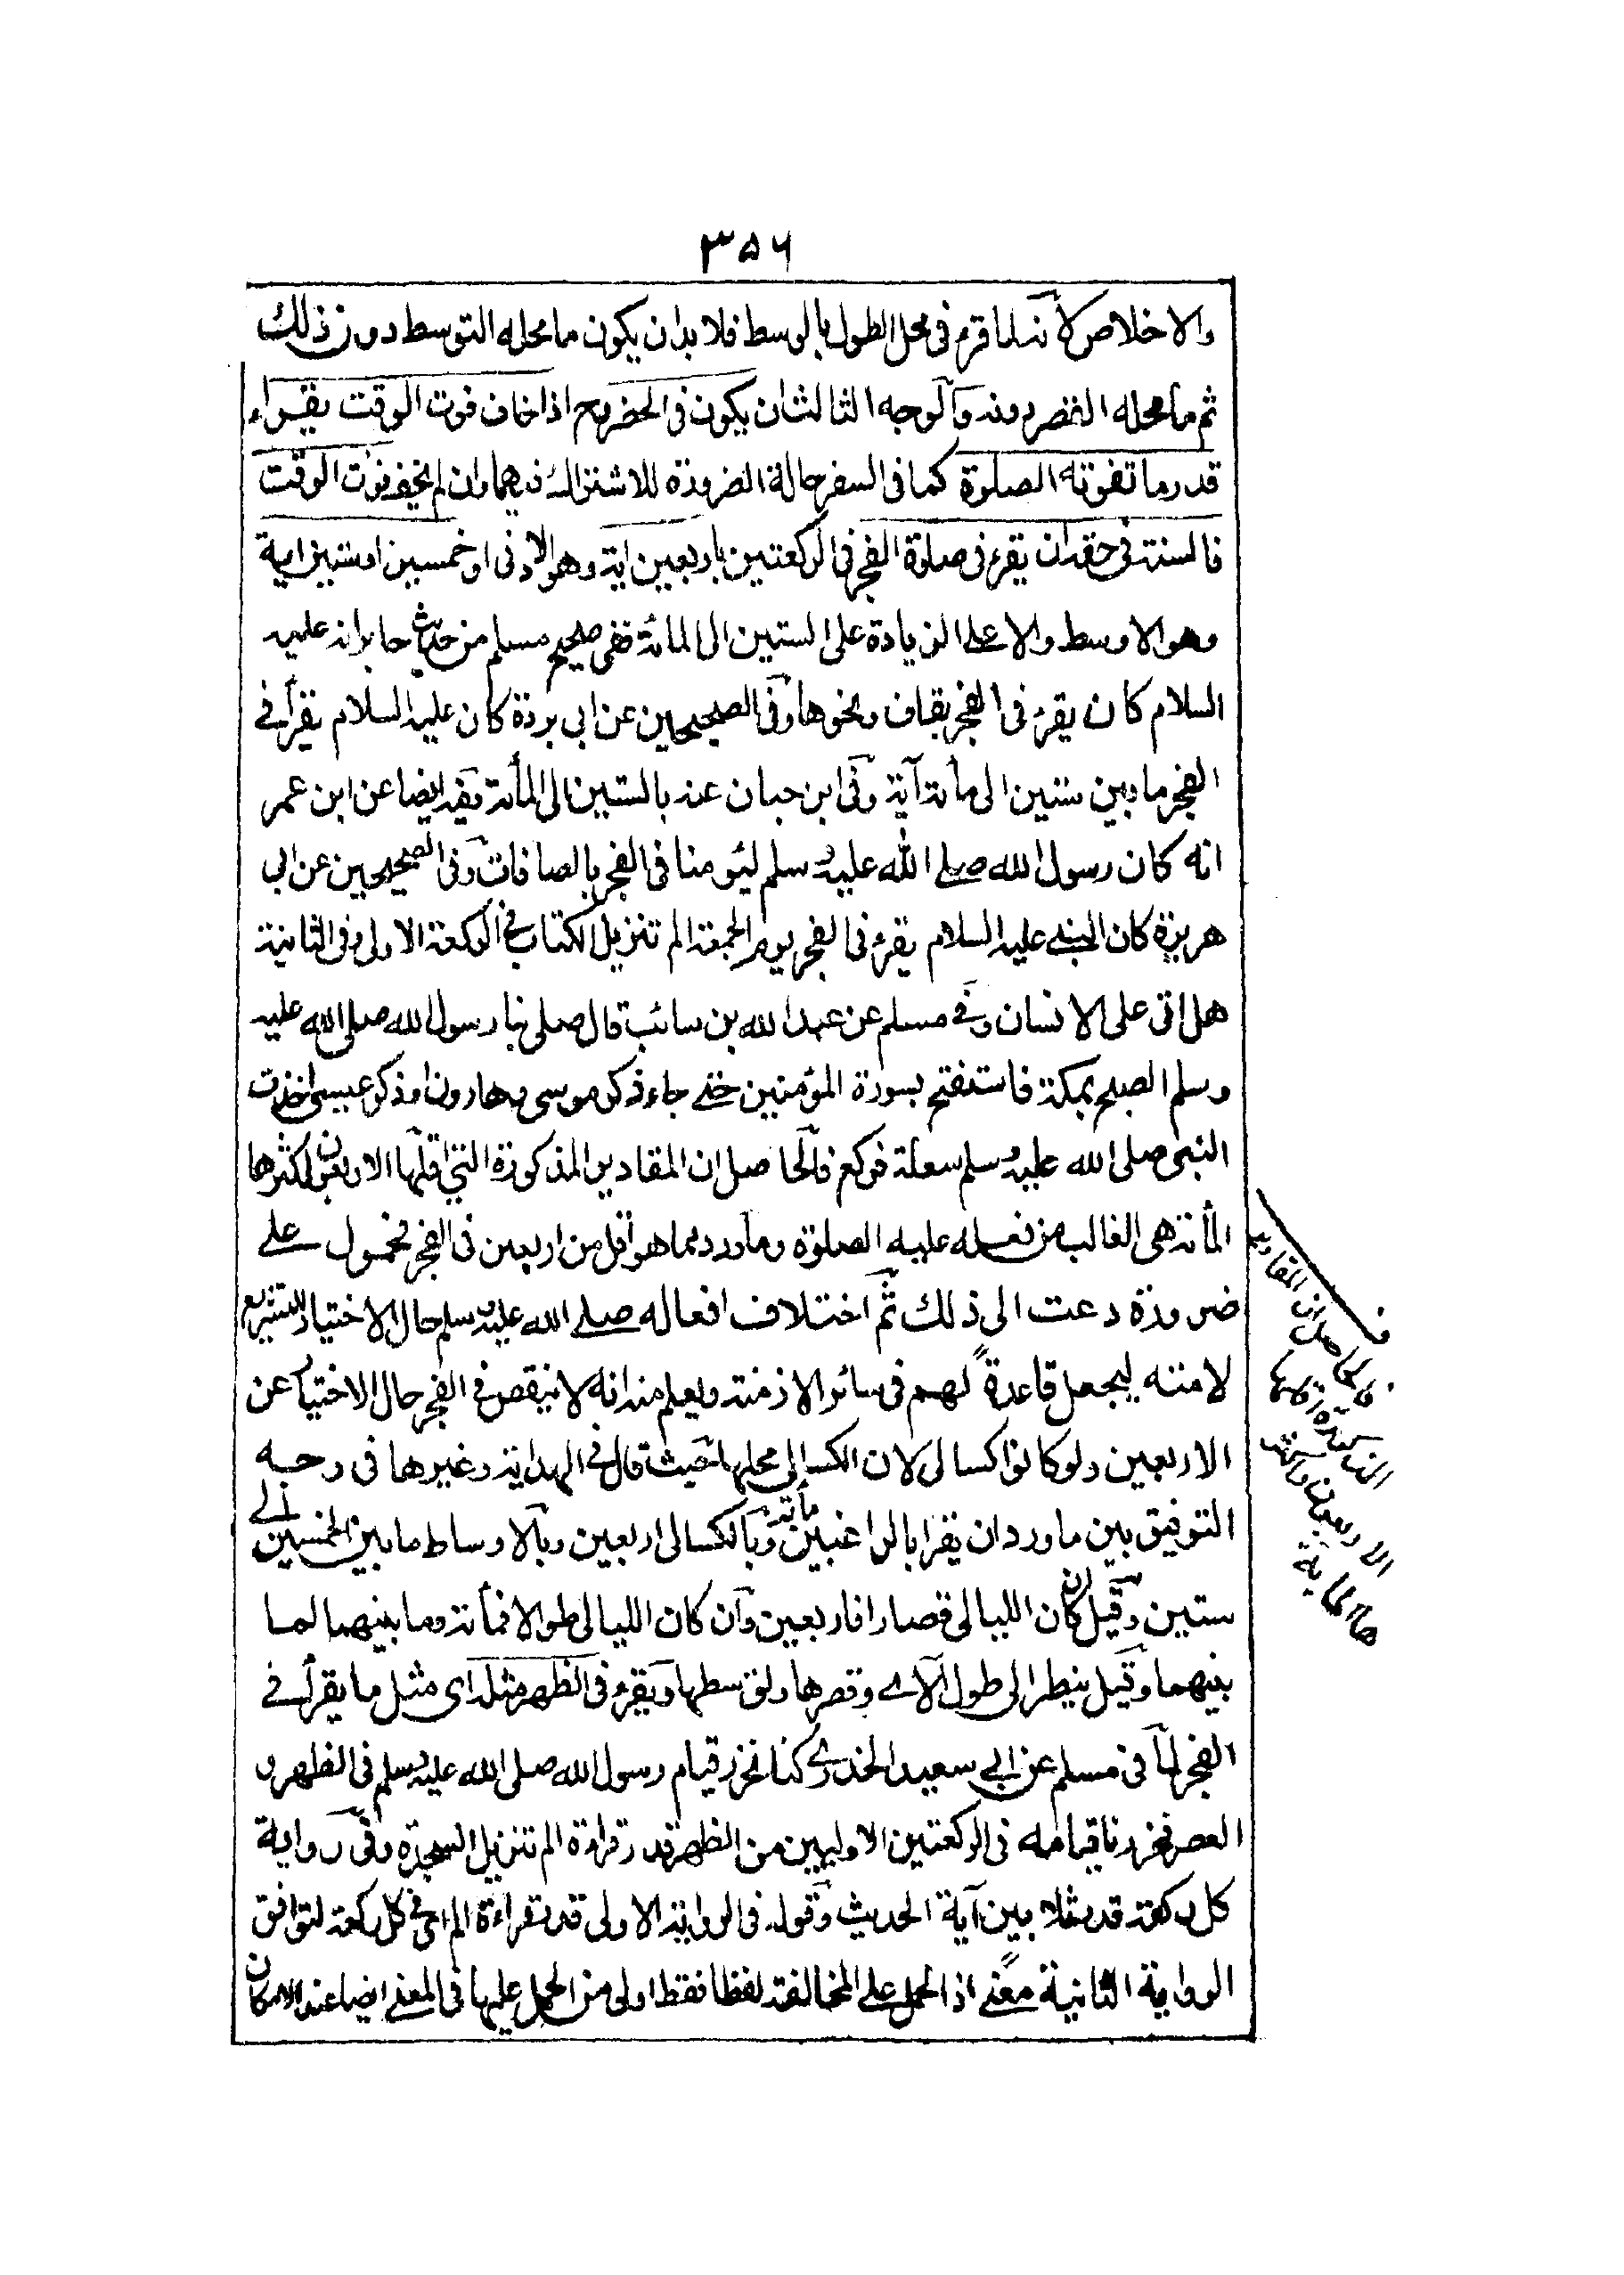 ٣٥٦
والاخلاص لأنه لما قرء فى محل الطول بالوسط فلا بد ان يكون ما محله التوسط دون ذلك
ثم ما محله القصر دونه وآلوجه الثالث ان يكون فى الحضر مع اذا خاف فوت الوقت يقراء
قدر ما تفوته الصلوة كما فى السفر حالة الضرورة للاشتراك فيهما وان لم يخف فوت الوقت
فالسنة فى حقه ان يقرء فى صلوة الفجر فى الركعتين باربعين اية وهو الادنى او خمسين او ستين اية
وهو الاوسط والاعلى الزيادة على الستين الى المائة ففى صحيح مسلم من حديث جابر انه عليه
السلام كان يقرء فى الفجر بقاف ونحوها وفى الصحيحين عن ابى بردة كان عليه السلام يقرأ فى
الفجر ما بين ستين الى مأئة آية وفى ابن حبان عنه بالستين الى المأئة ايضا عن ابن عمر
انه كان رسول الله صلى الله عليه وسلم ليؤمنا فى الفجر بالصافات وفى الصحيحين عن ابى
هريرة كان النبى عليه السلام يقرء فى الفجر يوم الجمعة الم تنزيل الكتاب فى الركعة الاولى وفى الثانية
هل اتى على الانسان وفى مسلم عن عبد الله بن سائب قال صلى بنا رسول الله صلى الله عليه
وسلم الصبح بمكة فاستفتح بسورة المؤمنين حتى جاء ذكر موسى وهارون او ذكر عيسى اخذت
النبى صلى الله عليه وسلم سعلة فركع فالحاصل ان المقادير المذكورة التى اقلها الاربعون واكثرها
المأئة هى الغالب من فعله عليه الصلوة وما ورد مما هو اقل من اربعين فى الفجر محمول على
ضرورة دعت الى ذلك ثم اختلاف افعاله صلى الله عليه وسلم حال الاختيار للتشريع
لامته ليجعل قاعدة لهم فى سائر الازمنة ويعلم منه انه لا ينقص فى الفجر حال الاختيار عن
الاربعين ولو كانوا كسالى لان الكسالى محلها حيث قال فى الهداية وغيرها فى وجه
التوفيق بين ما ورد ان يقرا بالراغبين مأئة وبالكسالى اربعين وبالاوساط ما بين الخمسين الى
ستين وقيل ان كان الليالى قصارا فاربعين وان كان الليالى طوالا فمأئة وما بينهما لما
بينهما وقيل ينظر الى طول الآى وقصرها وتوسطها ويقرء فى الظهر مثله اى مثل ما يقرأ فى
الفجر لما فى مسلم عن ابى سعيد الخدرى كنا نحزر قيام رسول الله صلى الله عليه وسلم فى الظهر و
العصر فحزرنا قيامه فى الركعتين الاوليين من الظهر قدر قراءة الم تنزيل السجدة وفى رواية
كل ركعة قدر ثلاثين آية الحديث وقوله فى الرواية الاولى قدر قراءة الم اى فى كل ركعة لتوافق
الرواية الثانية معنى اذ الحمل على المخالفة لفظا فقط اولى من الحمل عليها فى المعنى ايضا عند الامكان
ف
فالحاصل ان المقادير
المذكورة اقلها
الاربعين واكثر
ها المائة